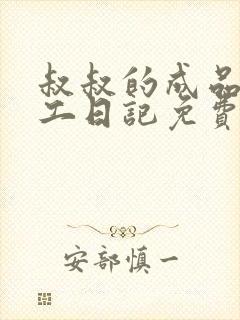 叔叔的成品
工日记免费
安部慎一